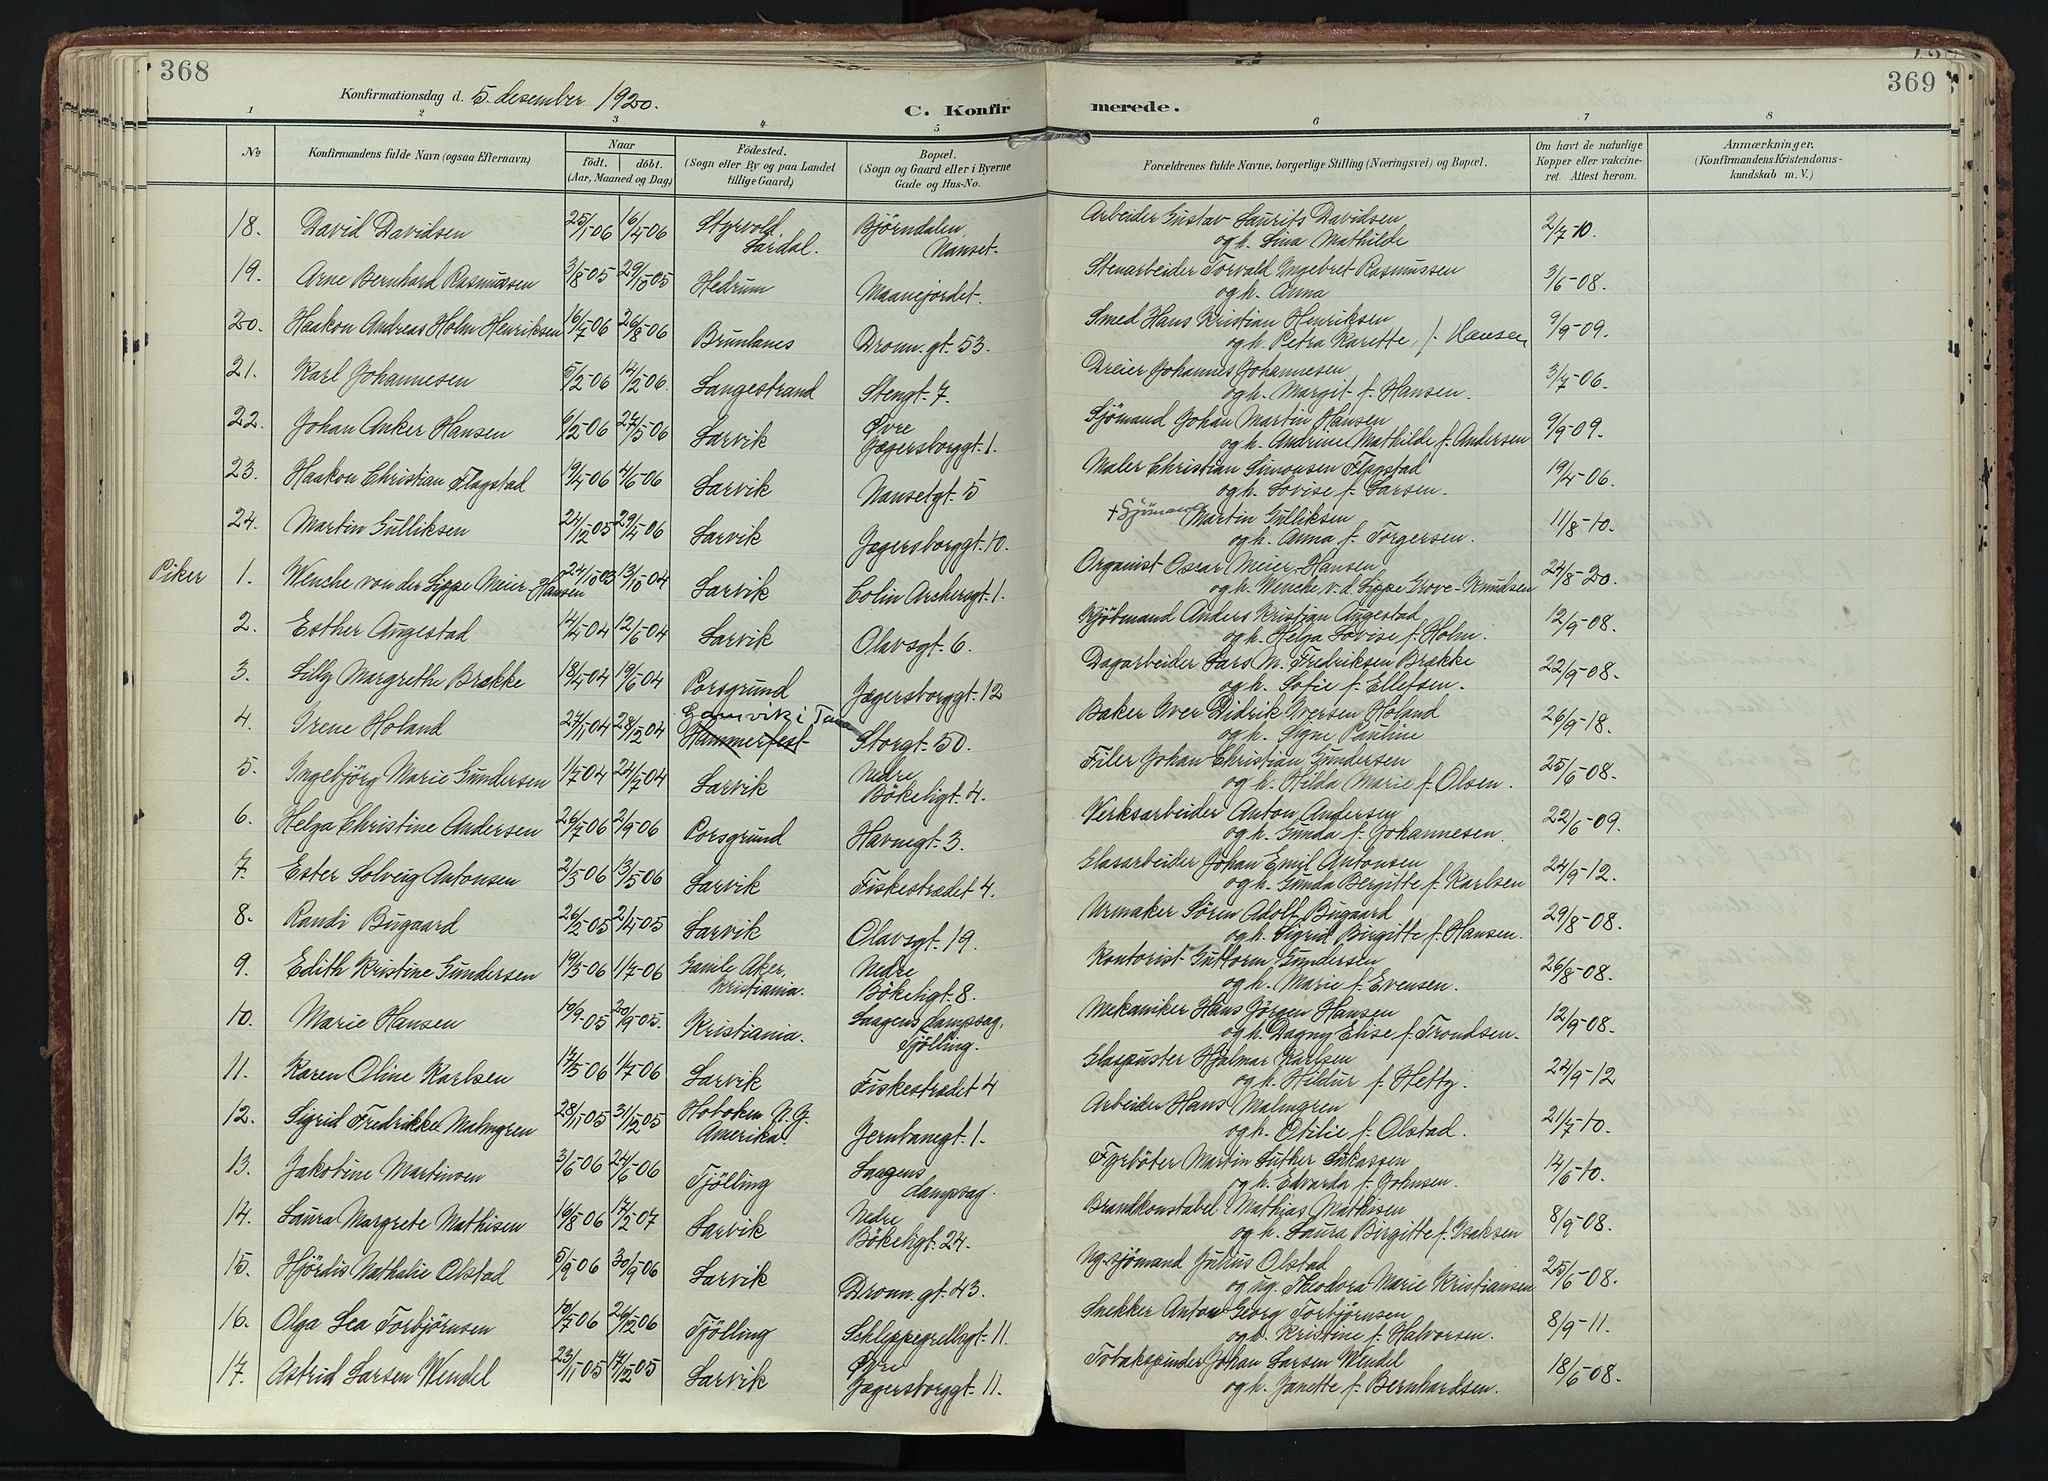 368
369
Konfirmationsdag d. 5. desember 1920.
C. Konfirmerede.
1 2 3 4 5 6 7 8
No
Konfirmandens fulde Navn (ogsaa Efternavn)
Naar
födt. döbt.
(Aar, Maaned og Dag)
Födested.
(Sogn eller By og paa Landet
tillige Gaard)
Bopæl.
(Sogn og Gaard eller i Byerne
Gade og Hus-No.
Forældrenes fulde Navne, borgerlige Stilling (Næringsvei) og Bopæl.
Om havt de naturlige
Kopper eller vakcine-
ret. Attest herom.
Anmærkninger.
(Konfirmandens Kristendoms-
kundskab m. V.)
18. David Davidsen 25/1-06 16/4-06 Styrvold, Bjørndalen, Arbeider Gustav Laurits Davidsen 2/7-10.
Lardal. Nanset. og h. Lina Mathilde
19. Arne Bernhard Rasmussen 3/8-05 29/10-05 Hedrum Maanejordet. Stenarbeider Torvald Ingebret Rasmussen 3/6-08.
og h. Anna
20. Haakon Andreas Holm Henriksen 16/7-06 26/8-06 Brunlanes Dronn. gt. 53. Smed Hans Kristian Henriksen 9/9-09.
og h. Petra Karette, f. Hansen
21. Karl Johannesen 5/2-06 14/2-06. Langestrand Stengt. 7. Dreier Johannes Johannesen 3/7-06.
og h. Margit f. Hansen.
22. Johan Anker Hansen 6/2-06 27/5-06 Larvik Øvre Sjömand Johan Martin Hansen 9/9-09.
Jægersborggt. 1. og h. Andrine Mathilde f. Andersen
23. Haakon Christian Flagstad 19/4-06 4/6-06 Larvik Nansetgt. 5 Maler Christian Simonsen Flagstad 19/4-06.
og h. Lovise f. Larsen.
24. Martin Gulliksen 24/12-05 29/4-06 Larvik Jægersborggt. 10. + Sjömand Martin Gulliksen 11/8-10.
og h. Anna f. Torgersen.
Piker 1. Wenche von der Lippe Meier-Hansen 24/10-03 13/10-04 Larvik Colin Archersgt. 1. Organist Oscar Meier-Hansen 24/8-20.
og h. Wenche v. d. Lippe Grove-Knudsen
2. Esther Augestad 14/4-04 12/6-04 Larvik Olavsgt. 6. Kjöbmand Anders Kristian Augestad 12/9-08.
og h. Helga Lovise f. Holm.
3. Lilly Margrethe Brække 18/4-04 19/6-04 Porsgrund Jægersborggt. 12 Dagarbeider Lars M. Fredriksen Brække 22/9-08.
og h. Sofie f. Ellefsen.
4. Irene Holand 27/1-04 28/2-04 Gamvik i Tana Storgt. 50. Baker Iver Didrik Iversen Holand 26/9-18.
Hammerfest og h. Signe Pauline
5. Ingebjörg Marie Gundersen 1/7-04 24/7-04 Larvik Nedre Filer Johan Christian Gundersen 25/6-08.
Bökeligt. 4. og h. Hilda Marie f. Olsen.
6. Helga Christine Andersen 26/7-06 2/9-06 Porsgrund Havnegt. 3. Verksarbeider Anton Andersen 22/6-09.
og h. Gunda f. Johannesen.
7. Ester Solveig Antonsen 2/3-06 13/5-06 Larvik Fiskestrædet 4. Glasarbeider Johan Emil Antonsen 24/9-12.
og h. Gunda Bergitte f. Karlsen
8. Randi Bugaard 26/2-05 2/4-05 Larvik Olavsgt. 19. Urmaker Sören Adolf Bugaard 29/8-08.
og h. Sigrid Birgitte f. Hansen.
9. Edith Kristine Gundersen 19/3-06 1/7-06 Gamle Aker, Nedre Kontorist Guttorm Gundersen 26/8-08.
Kristiania. Bökeligt. 8. og h. Marie f. Evensen.
10. Marie Hansen 10/9-05 20/9-05. Kristiania. Laagens dampsag, Mekaniker Hans Jörgen Hansen 12/9-08.
Tjölling. og h. Dagny Elise f. Trondsen.
11. Karen Oline Karlsen 17/5-06 1/7-06 Larvik Fiskestrædet 4 Glaspuster Hjalmar Karlsen 24/9-12
og h. Hildur f. Hetty.
12. Sigrid Fredrikke Malmgren 28/11-05 31/12-05 Hoboken N. J. Jernbanegt. 1. Arbeider Hans Malmgren 21/7-10.
Amerika. og h. Otilie f. Olstad.
13. Jakobine Martinsen 3/5-06 24/6-06 Tjölling Laagens Fyrböter Martin Luther Lukassen 14/6-10.
dampsag. og h. Edvarda f. Johnsen.
14. Laura Margrete Mathisen 16/8-06 17/2-07 Larvik Nedre Brandkonstabel Mathias Mathisen 8/9-08.
Bökeligt. 24. og h. Laura Birgitte f. Isaksen
15. Hjördis Nathalie Olstad 5/9-06 30/9-06 Larvik Dronn. gt. 43. Ug. sjömand Julius Olstad 25/6-08.
og ug. Theodora Marie Kristiansen
16. Olga Lea Torbjørnsen 10/7-06 26/12-06 Tjölling Schlippegrellsgt. 11. Snekker Anton Georg Torbjørnsen 8/9-11.
og h. Kristine f. Halvorsen.
17. Astrid Larsen Wendel 23/11-05 17/12-05 Larvik Øvre Tobakspinder Johan Larsen Wendel 18/6-08.
Jægersborggt. 11. og h. Janette f. Bernhardsen.